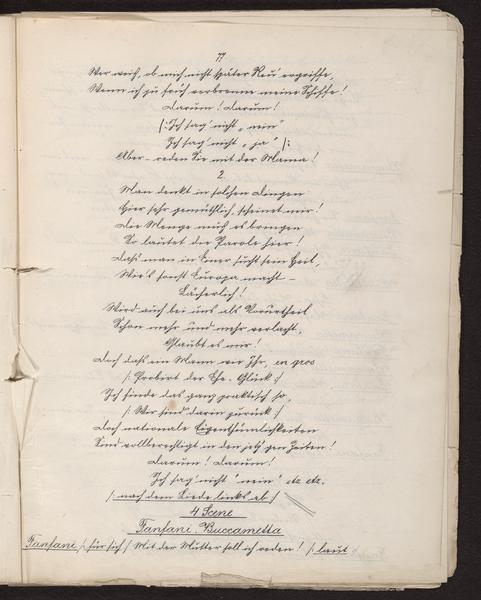 77
Wer weiß, ob mich nicht später Reu' ergriffe,
Wenn ich zu früh verbrenne meine Schiffe!
Darum! Darum!
/: Ich sag' nicht „nein"
Ich sag' nicht „ja" /:
Aber – reden Sie mit der Mama!
2.
Man denkt in solchen Dingen
Hier sehr gemüthlich, scheinet mir!
Die Menge muß es bringen
So lautet die Parole hier!
Daß man in Einer sucht sein Heil,
Wie's sonst Europa macht –
Lächerlich!
Wird auch bei uns als Vorurtheil
Schon mehr und mehr verlacht,
Glaubt es mir!
Doch daß ein Mann wie Ihr, en gros
/: Probirt der Ehe-Glück :/
Ich finde das ganz praktisch so,
/: Wir sind darin zurück :/
Doch nationale Eigenthümlichkeiten
Sind vollberechtigt in den jetz'gen Zeiten!
Darum! Darum!
Ich sag' nicht "nein" etz etz.
/ nach dem Liede links ab /
4 Scene
Fanfani Buccametta
Fanfani /: für sich / Mit der Mutter soll ich reden! / laut :/